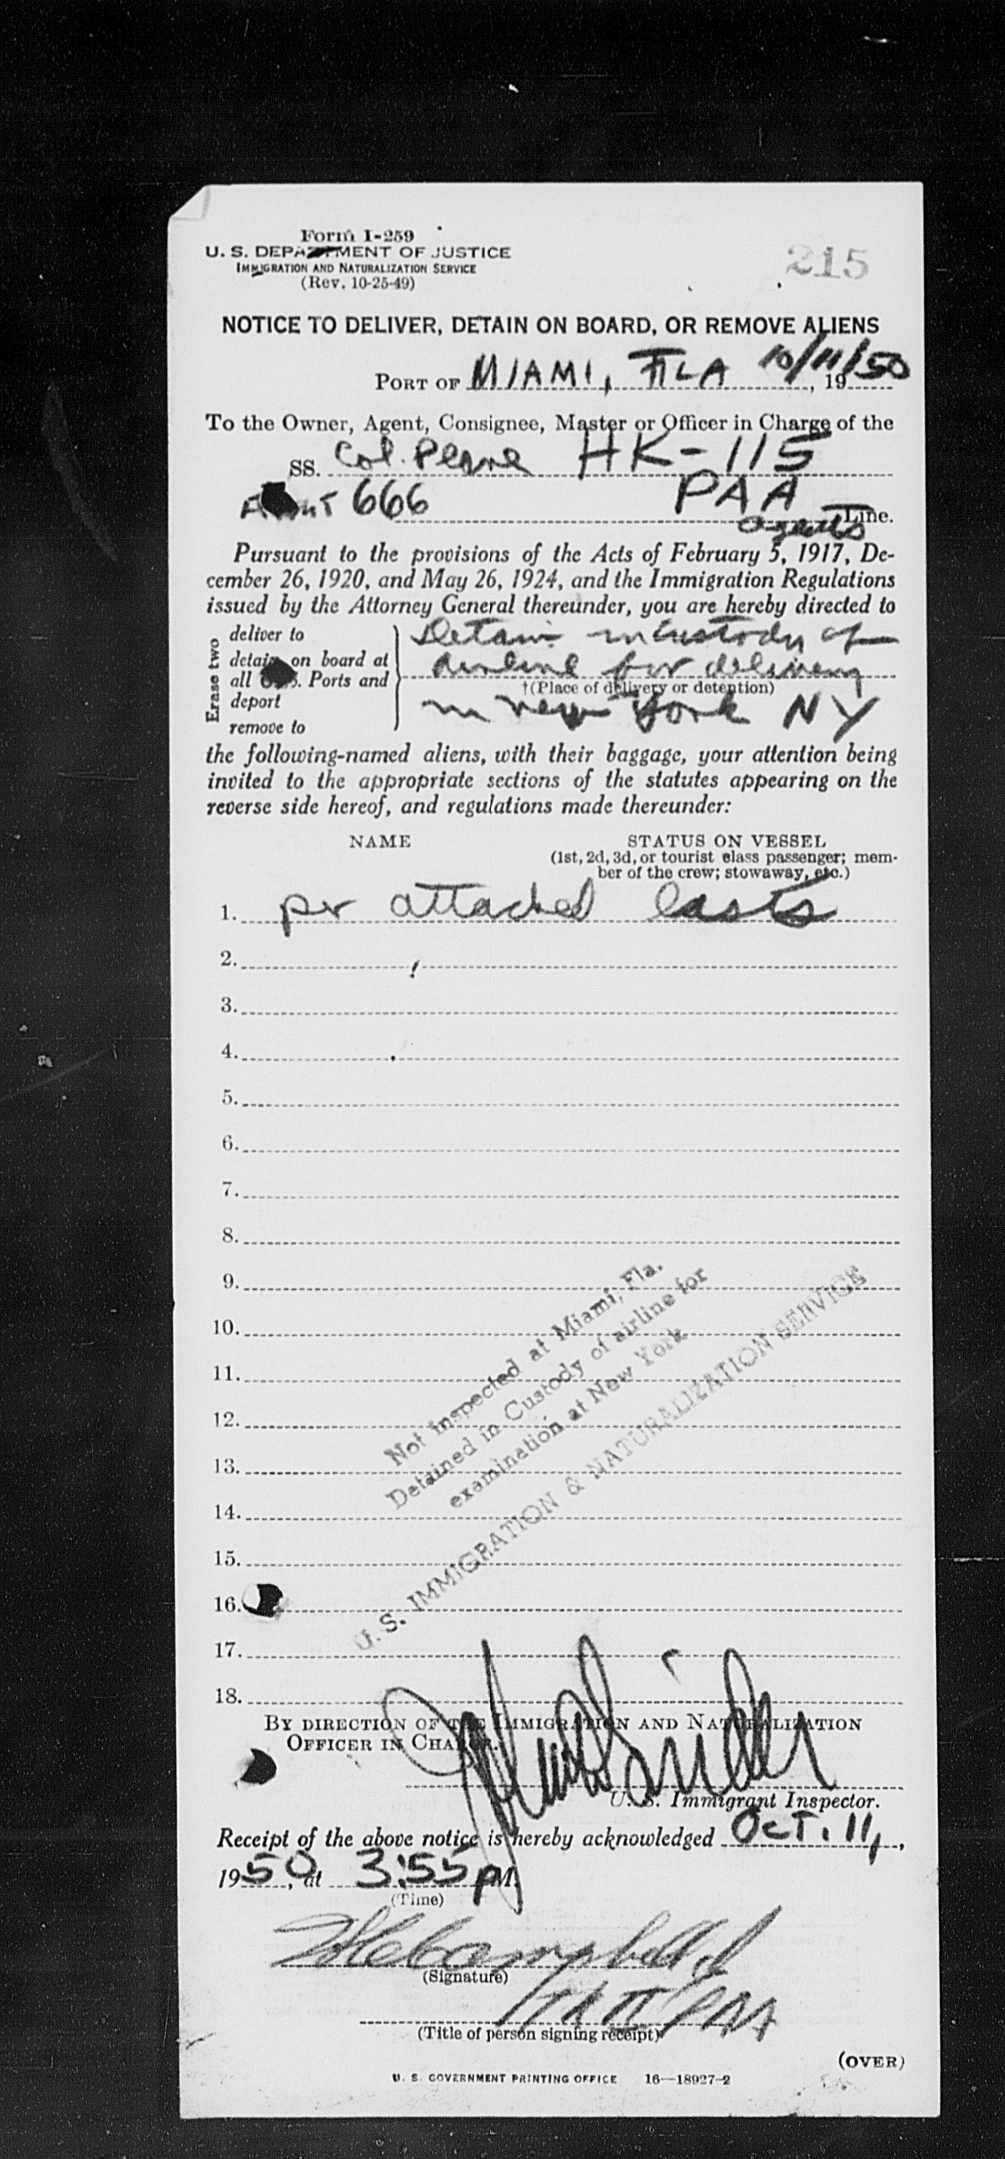 Form I-259
U. S. DEPARTMENT OF JUSTICE
IMMIGRATION AND NATURALIZATION SERVICE
(Rev. 10-25-49)
215
NOTICE TO DELIVER, DETAIN ON BOARD, OR REMOVE ALIENS
PORT OF MIAMI, FLA 10/11/50, 19
To the Owner, Agent, Consignee, Master or Officer in Charge of the
SS. Col. Plane HK-115
666 PAA
agents Line.
Pursuant to the provisions of the Acts of February 5, 1917, De-
cember 26, 1920, and May 26, 1924, and the Immigration Regulations
issued by the Attorney General thereunder, you are hereby directed to
Erase two
deliver to
detain on board at
all U.S. Ports and
deport
remove to
Detain in custody of
airline for delivery
†(Place of delivery or detention)
in New York NY
the following-named aliens, with their baggage, your attention being
invited to the appropriate sections of the statutes appearing on the
reverse side hereof, and regulations made thereunder:
NAME STATUS ON VESSEL
(1st, 2d, 3d, or tourist class passenger; mem-
ber of the crew; stowaway, etc.)
1. per attached lists
2.
3.
4.
5.
6.
7.
8.
9.
10.
11.
12.
13.
14.
15.
16.
17.
18.
Not inspected at Miami, Fla.
Detained in Custody of airline for
examination at New York
U. S. IMMIGRATION & NATURALIZATION SERVICE
BY DIRECTION OF THE IMMIGRATION AND NATURALIZATION
OFFICER IN CHARGE.
U. S. Immigrant Inspector.
Receipt of the above notice is hereby acknowledged Oct. 11,,
1950, at 3:55 PM.
(Time)
Campbell
(Signature)
PAA
(Title of person signing receipt)
(OVER)
U. S. GOVERNMENT PRINTING OFFICE 16—18927-2